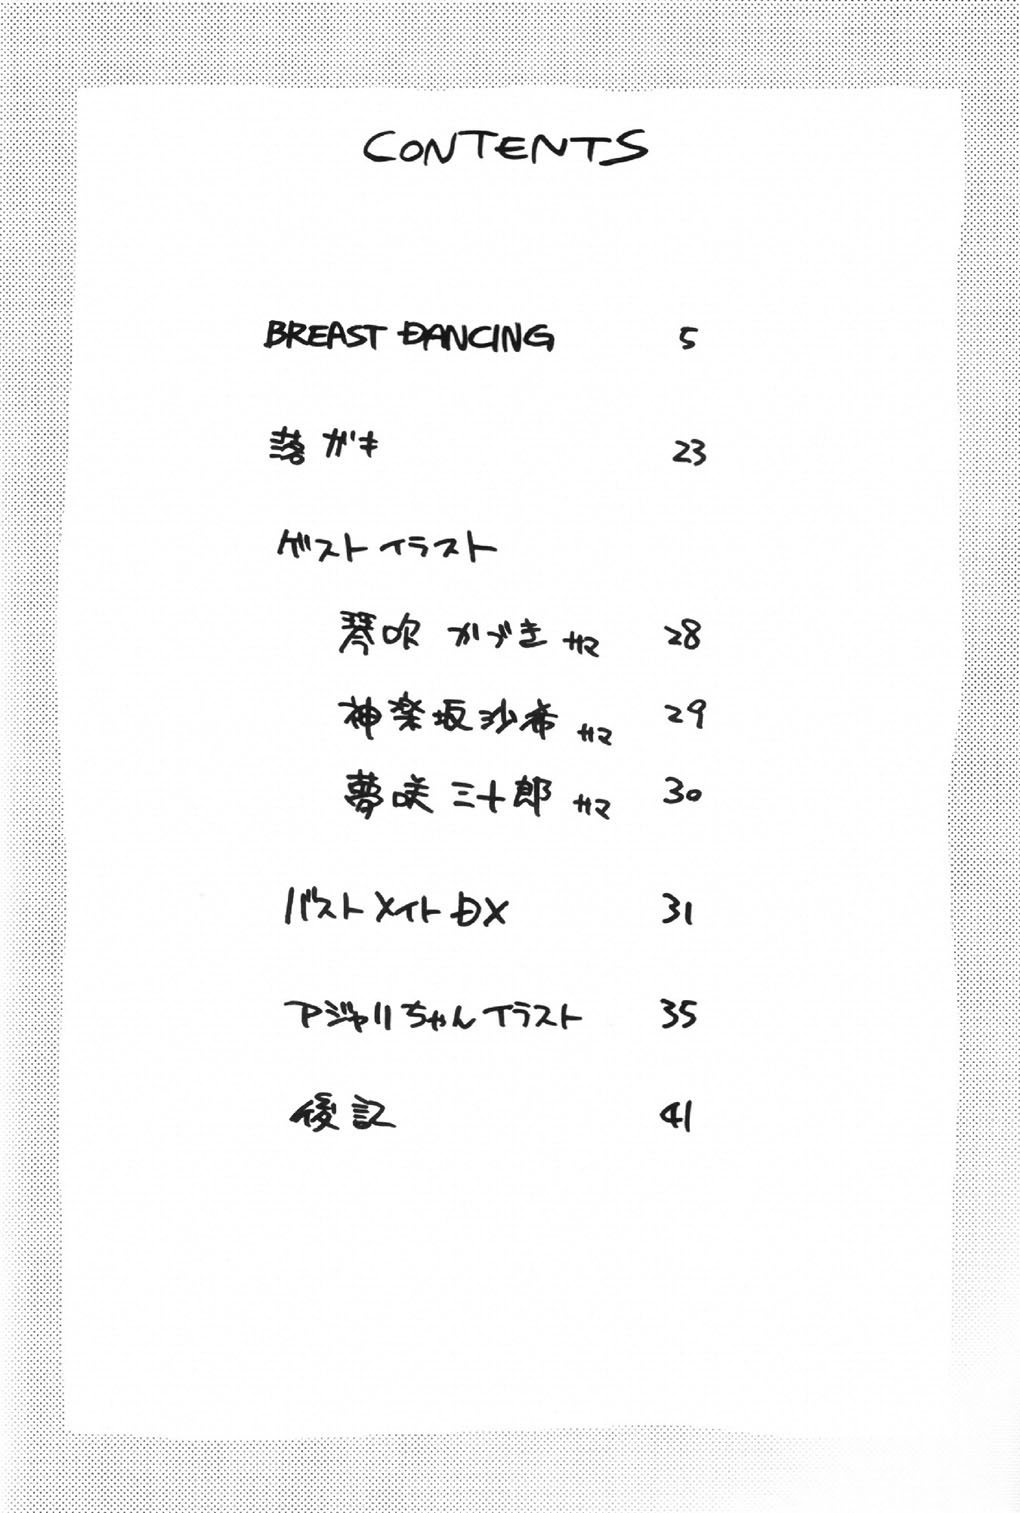 CONTENTS
BREAST DANCING 5
落がき 23
ゲストイラスト
琴吹かづきサマ 28
神楽坂沙希サマ 29
夢咲三十郎サマ 30
バストメイトDX 31
アジャリちゃんイラスト 35
後記 41